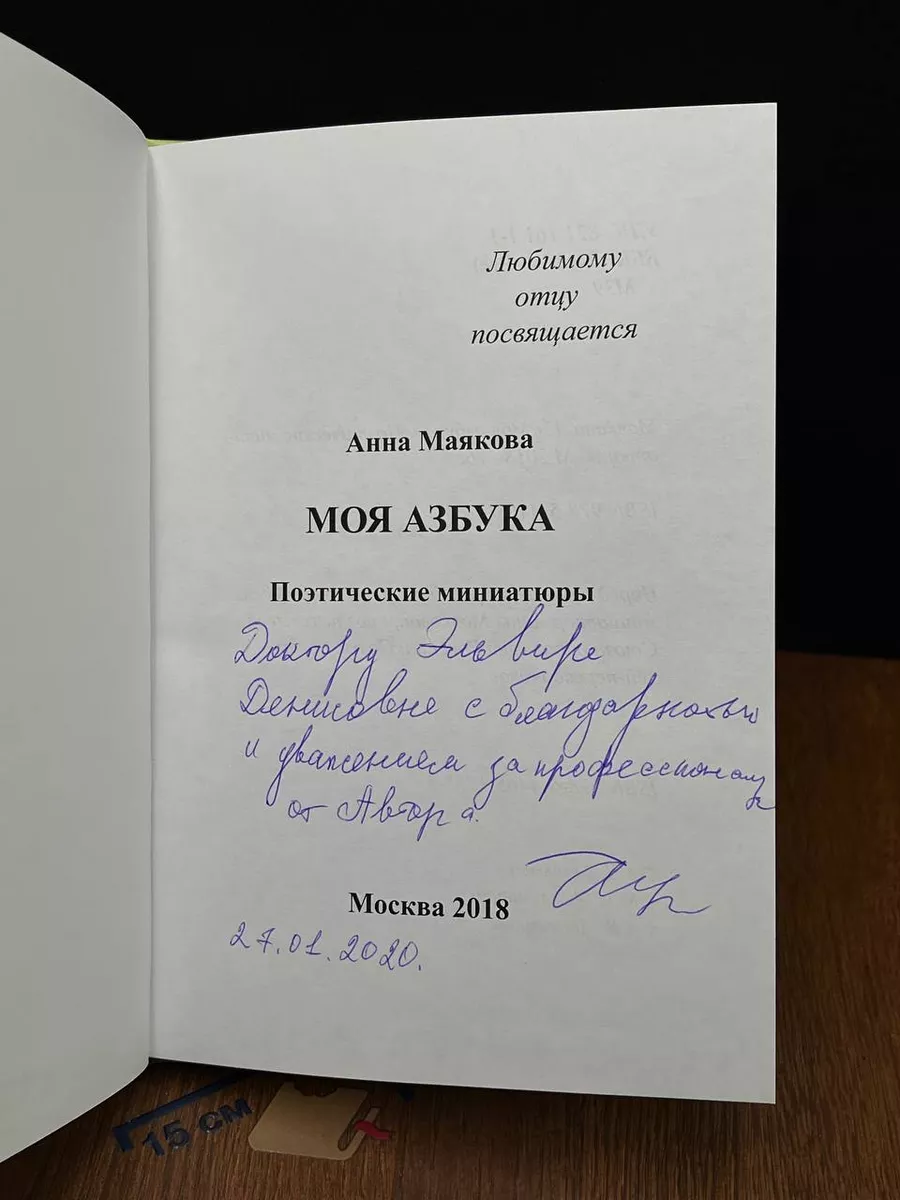 Любимому
отцу
посвящается
Анна Маякова
МОЯ АЗБУКА
Поэтические миниатюры
Доктору Эльвире
Денисовне с благодарностью
и уважением за
от Автора.
Москва 2018
27.01.2020.
15 см